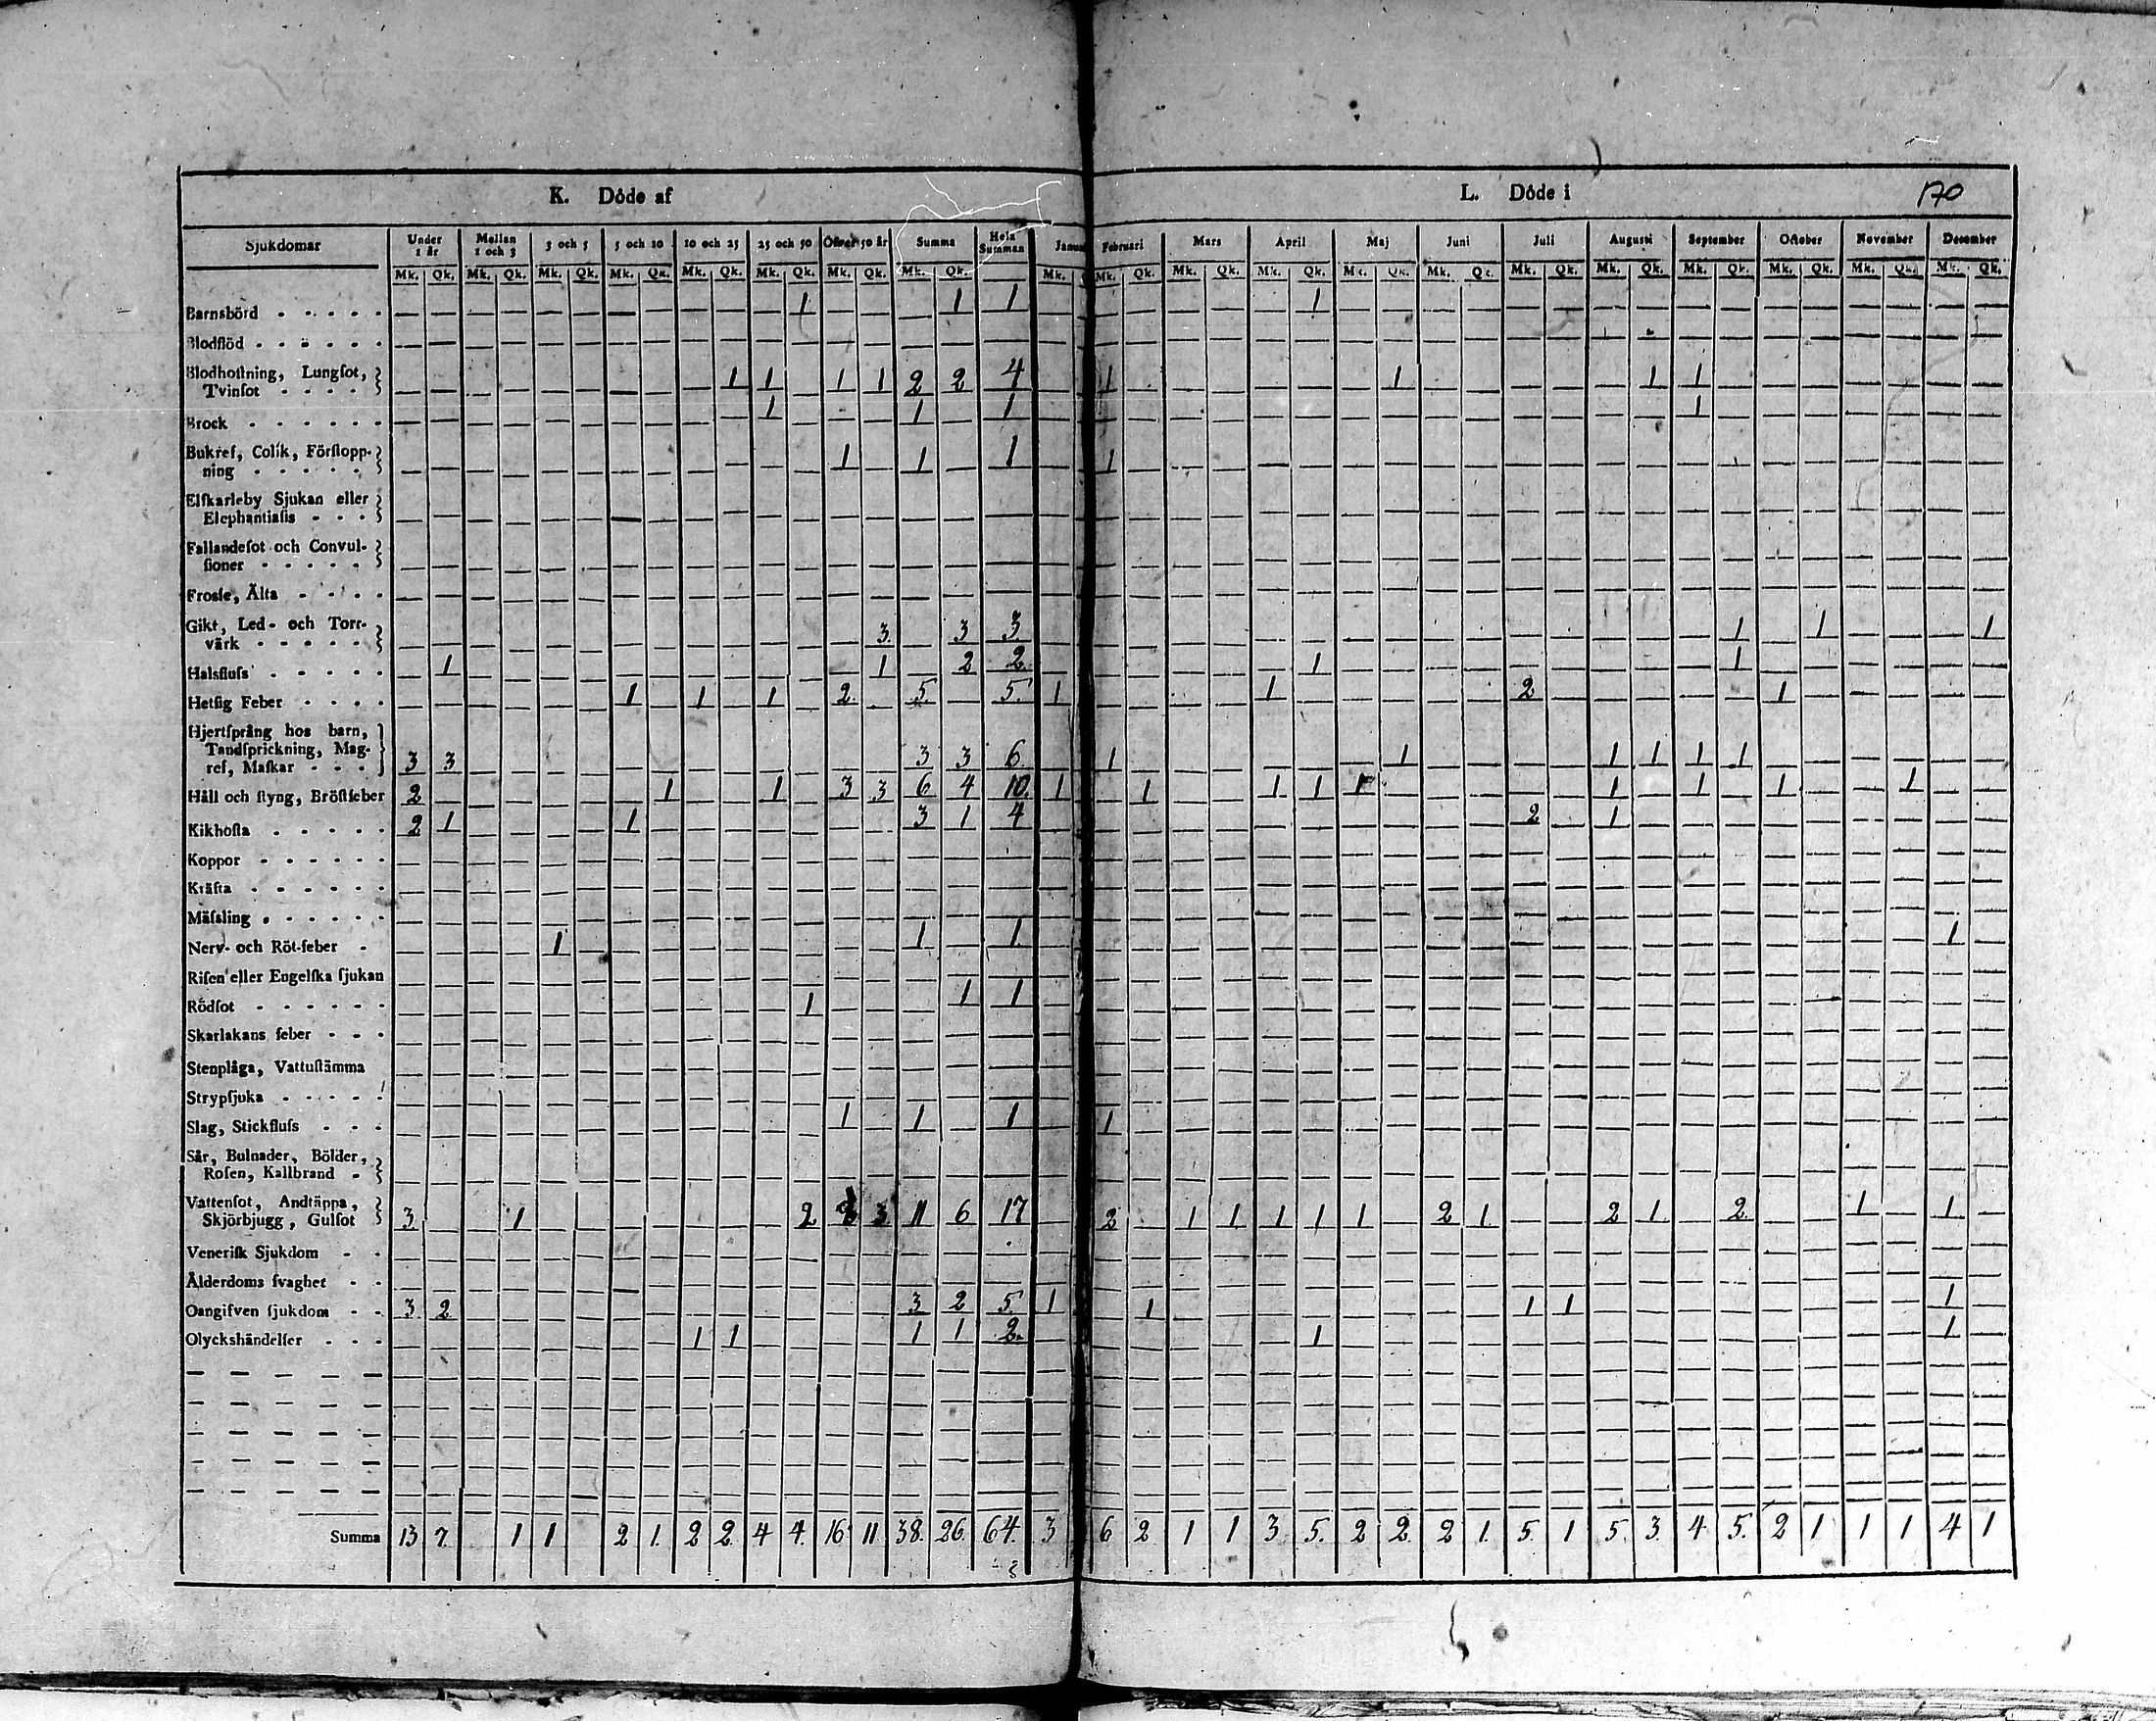 K. Döde af L. Döde i 170
Sjukdomar Under 1 år Mellan 1 och 3 3 och 5 5 och 10 10 och 25 25 och 50 Öfver 50 år Summa Hela Summan Februari Mars April Maj Juni Juli Augusti September October November December
Mk. Qk. Mk. Qk. Mk. Qk. Mk. Qk. Mk. Qk. Mk. Qk. Mk. Qk. Mk. Qk. Mk. Mk. Qk. Mk. Qk. Mk. Qk. Mk. Qk. Mk. Qk. Mk. Qk. Mk. Qk. Mk. Qk. Mk. Qk. Mk. Qk. Mk. Qk.
Barnsbörd 1 1 1 1
Blodflöd
Blodhoſtning, Lungſot,
Tvinſot 1 1 1 1 2 2 4 1 1 1 1
Brock 1 1 1 1
Bukref, Colik, Förſtopp-
ning 1 1 1 1
Elfkarleby Sjukan eller
Elephantiaſis
Fallandeſot och Convul-
ſioner
Frosſe, Älta
Gikt, Led- och Torr-
värk 3 3 3 1 1 1
Halsfluſs 1 1 2 2 1 1
Hetſig Feber 1 1 1 2 5 5 1 1 2 1
Hjertſprång hos barn,
Tandſprickning, Mag-
ref, Maſkar 3 3 3 3 6 1 1 1 1 1 1
Håll och ſtyng, Bröſtfeber 2 1 1 3 3 6 4 10 1 1 1 1 1 1 1 1 1
Kikhoſta 2 1 1 3 1 4 2 1
Koppor
Kräfta
Mäſsling
Nerv- och Röt-feber 1 1 1 1
Riſen eller Engelſka ſjukan
Rödſot 1 1 1
Skarlakans feber
Stenplåga, Vattuſtämma
Strypſjuka
Slag, Stickfluſs 1 1 1 1
Sår, Bulnader, Bölder,
Roſen, Kallbrand
Vattenſot, Andtäppa,
Skjörbjugg, Gulſot 3 1 2 3 11 6 17 2 1 1 1 1 1 2 1 2 1 2 1 1
Veneriſk Sjukdom
Ålderdoms ſvaghet
Oangifven ſjukdom 3 2 3 2 5 1 1 1 1 1
Olyckshändelſer 1 1 1 1 2 1 1
Summa 13 7 1 1 2 1 2 2 4 4 16 11 38 26 64 3 6 2 1 1 3 5 2 2 2 1 5 1 5 3 4 5 2 1 1 1 4 1